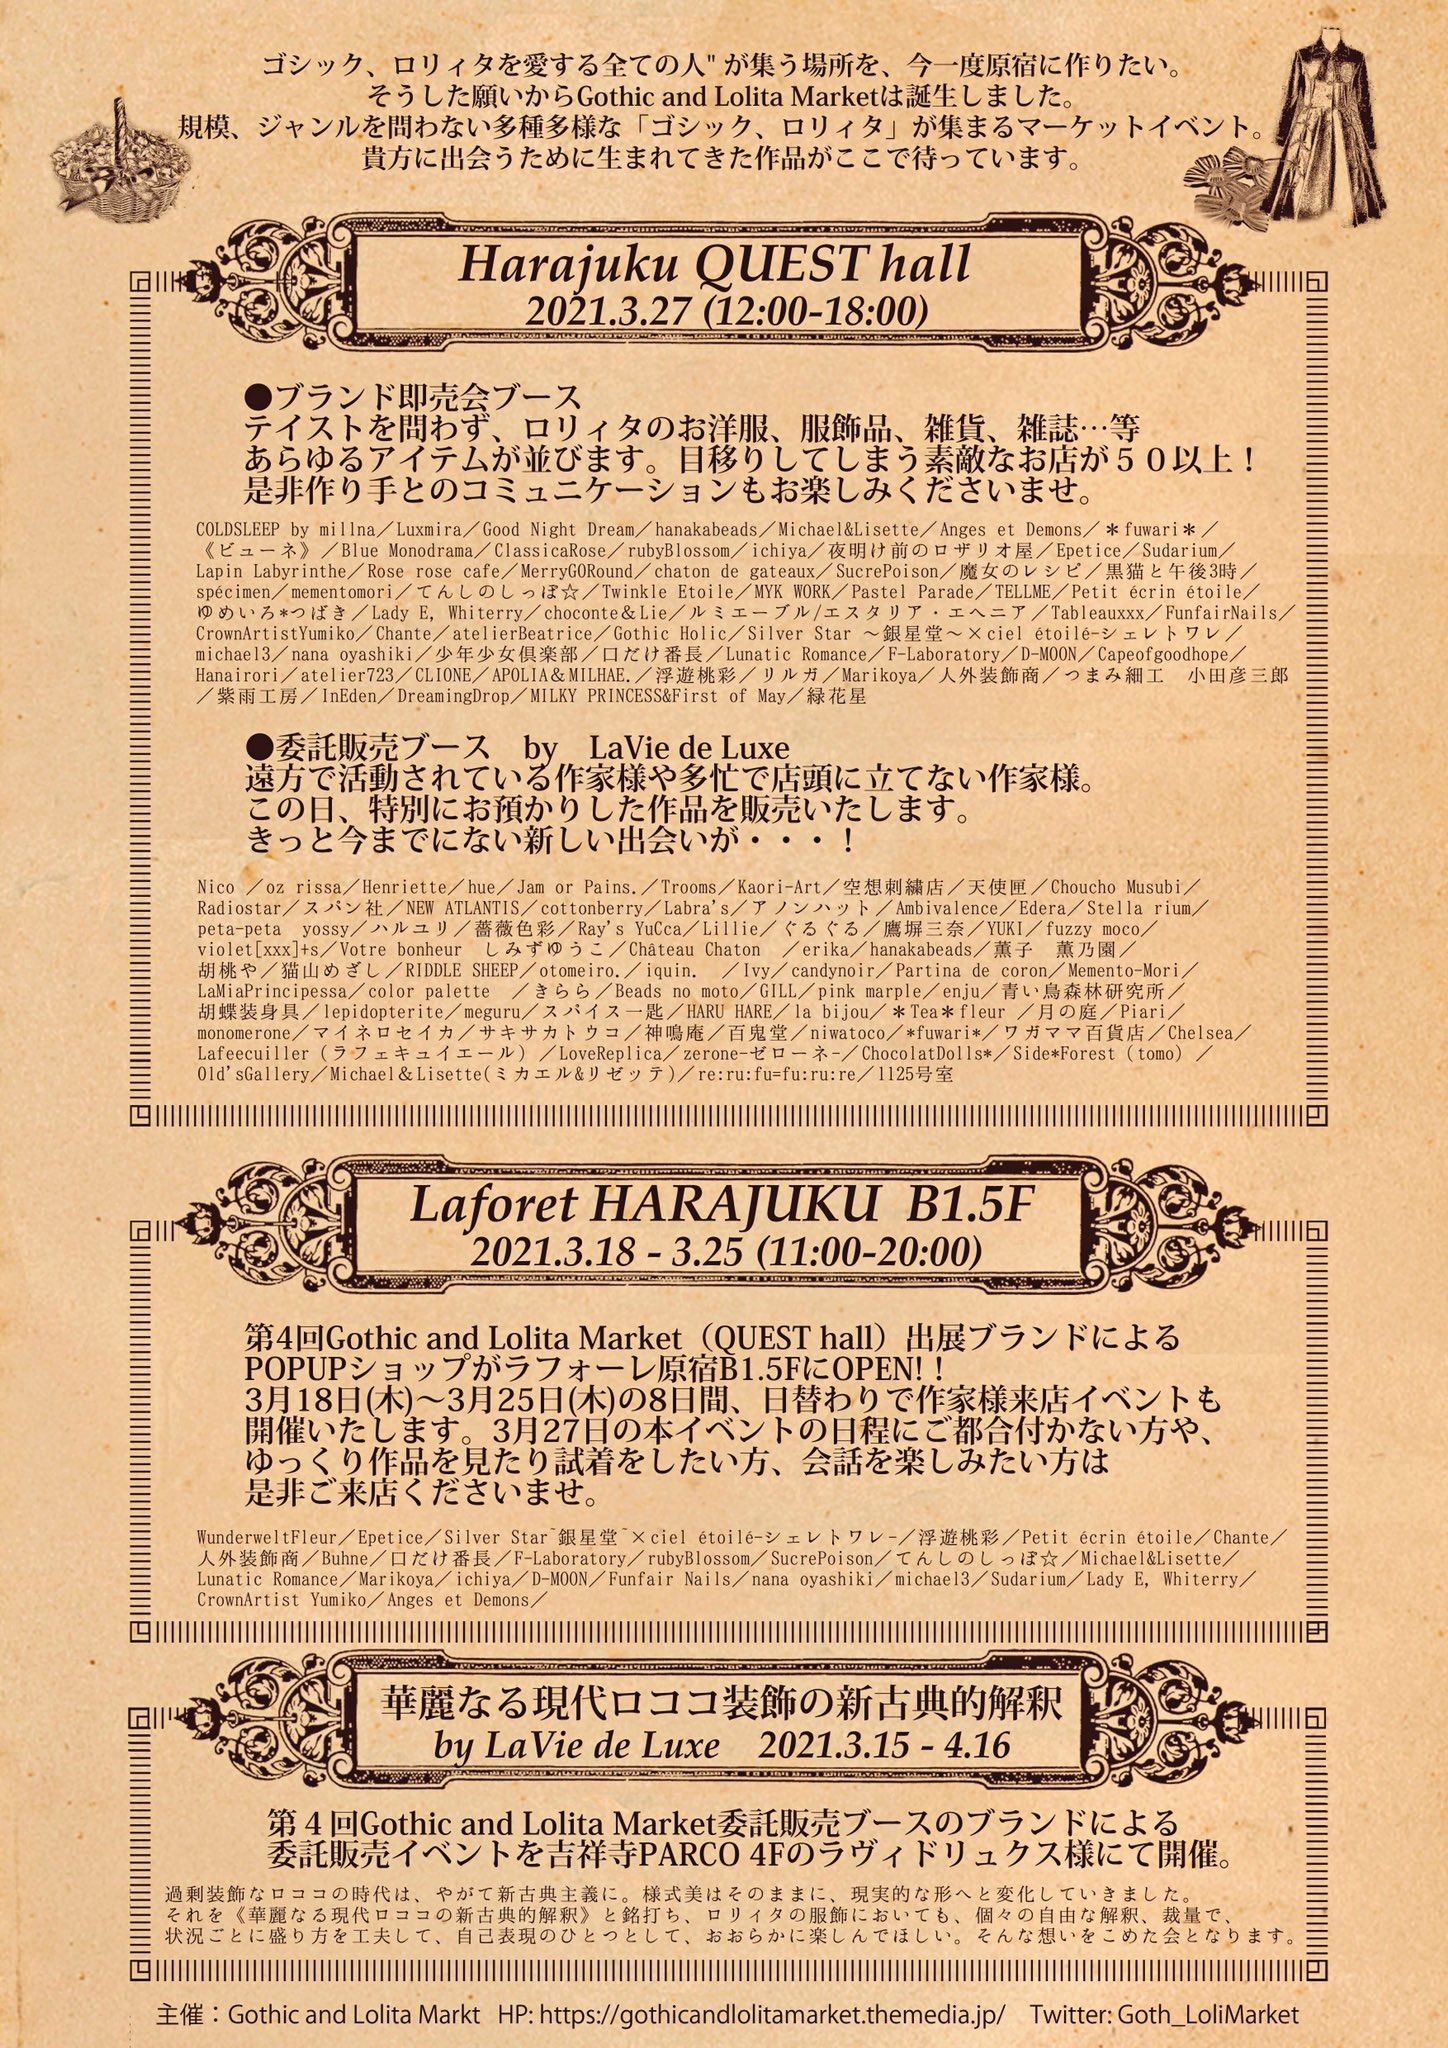 ゴシック、ロリィタを愛する全ての人" が集う場所を、今一度原宿に作りたい。
そうした願いからGothic and Lolita Marketは誕生しました。
規模、ジャンルを問わない多種多様な「ゴシック、ロリィタ」が集まるマーケットイベント。
貴方に出会うために生まれてきた作品がここで待っています。
Harajuku QUEST hall
2021.3.27 (12:00-18:00)
●ブランド即売会ブース
テイストを問わず、ロリィタのお洋服、服飾品、雑貨、雑誌…等
あらゆるアイテムが並びます。目移りしてしまう素敵なお店が５０以上！
是非作り手とのコミュニケーションもお楽しみくださいませ。
COLDSLEEP by millna／Luxmira／Good Night Dream／hanakabeads／Michael&Lisette／Anges et Demons／＊fuwari＊／
《ビューネ》／Blue Monodrama／ClassicaRose／rubyBlossom／ichiya／夜明け前のロザリオ屋／Epetice／Sudarium／
Lapin Labyrinthe／Rose rose cafe／MerryGORound／chaton de gateaux／SucrePoison／魔女のレシピ／黒猫と午後3時／
spécimen／mementomori／てんしのしっぽ☆／Twinkle Etoile／MYK WORK／Pastel Parade／TELLME／Petit écrin étoile／
ゆめいろ*つばき／Lady E, Whiterry／choconte＆Lie／ルミエーブル/エスタリア・エヘニア／Tableauxxx／FunfairNails／
CrownArtistYumiko／Chante／atelierBeatrice／Gothic Holic／Silver Star ～銀星堂～×ciel étoilé-シェレトワレ／
michael3／nana oyashiki／少年少女倶楽部／口だけ番長／Lunatic Romance／F-Laboratory／D-MOON／Capeofgoodhope／
Hanairori／atelier723／CLIONE／APOLIA＆MILHAE.／浮遊桃彩／リルガ／Marikoya／人外装飾商／つまみ細工　小田彦三郎
／紫雨工房／InEden／DreamingDrop／MILKY PRINCESS&First of May／緑花星
●委託販売ブース　by　LaVie de Luxe
遠方で活動されている作家様や多忙で店頭に立てない作家様。
この日、特別にお預かりした作品を販売いたします。
きっと今までにない新しい出会いが・・・！
Nico ／oz rissa／Henriette／hue／Jam or Pains.／Trooms／Kaori-Art／空想刺繍店／天使匣／Choucho Musubi／
Radiostar／スパン社／NEW ATLANTIS／cottonberry／Labra's／アノンハット／Ambivalence／Edera／Stella rium／
peta-peta　yossy／ハルユリ／薔薇色彩／Ray's YuCca／Lillie／ぐるぐる／鷹塀三奈／YUKI／fuzzy moco／
violet[xxx]+s／Votre bonheur　しみずゆうこ／Château Chaton　／erika／hanakabeads／薫子　薫乃園／
胡桃や／猫山めざし／RIDDLE SHEEP／otomeiro.／iquin.　／Ivy／candynoir／Partina de coron／Memento-Mori／
LaMiaPrincipessa／color palette　／きらら／Beads no moto／GILL／pink marple／enju／青い鳥森林研究所／
胡蝶装身具／lepidopterite／meguru／スパイス一匙／HARU HARE／la bijou／＊Tea＊fleur ／月の庭／Piari／
monomerone／マイネロセイカ／サキサカトウコ／神鳴庵／百鬼堂／niwatoco／*fuwari*／ワガママ百貨店／Chelsea／
Lafeecuiller（ラフェキュイエール）／LoveReplica／zerone-ゼローネ-／ChocolatDolls*／Side*Forest（tomo）／
Old'sGallery／Michael＆Lisette(ミカエル&リゼッテ)／re:ru:fu=fu:ru:re／1125号室
Laforet HARAJUKU B1.5F
2021.3.18 - 3.25 (11:00-20:00)
第4回Gothic and Lolita Market（QUEST hall）出展ブランドによる
POPUPショップがラフォーレ原宿B1.5FにOPEN!！
3月18日(木)～3月25日(木)の8日間、日替わりで作家様来店イベントも
開催いたします。3月27日の本イベントの日程にご都合付かない方や、
ゆっくり作品を見たり試着をしたい方、会話を楽しみたい方は
是非ご来店くださいませ。
WunderweltFleur／Epetice／Silver Star~銀星堂~×ciel étoilé-シェレトワレ-／浮遊桃彩／Petit écrin étoile／Chante／
人外装飾商／Buhne／口だけ番長／F-Laboratory／rubyBlossom／SucrePoison／てんしのしっぽ☆／Michael&Lisette／
Lunatic Romance／Marikoya／ichiya／D-MOON／Funfair Nails／nana oyashiki／michael3／Sudarium／Lady E, Whiterry／
CrownArtist Yumiko／Anges et Demons／
華麗なる現代ロココ装飾の新古典的解釈
by LaVie de Luxe　2021.3.15 - 4.16
第４回Gothic and Lolita Market委託販売ブースのブランドによる
委託販売イベントを吉祥寺PARCO 4Fのラヴィドリュクス様にて開催。
過剰装飾なロココの時代は、やがて新古典主義に。様式美はそのままに、現実的な形へと変化していきました。
それを《華麗なる現代ロココの新古典的解釈》と銘打ち、ロリィタの服飾においても、個々の自由な解釈、裁量で、
状況ごとに盛り方を工夫して、自己表現のひとつとして、おおらかに楽しんでほしい。そんな想いをこめた会となります。
主催：Gothic and Lolita Markt　HP: https://gothicandlolitamarket.themedia.jp/　Twitter: Goth_LoliMarket